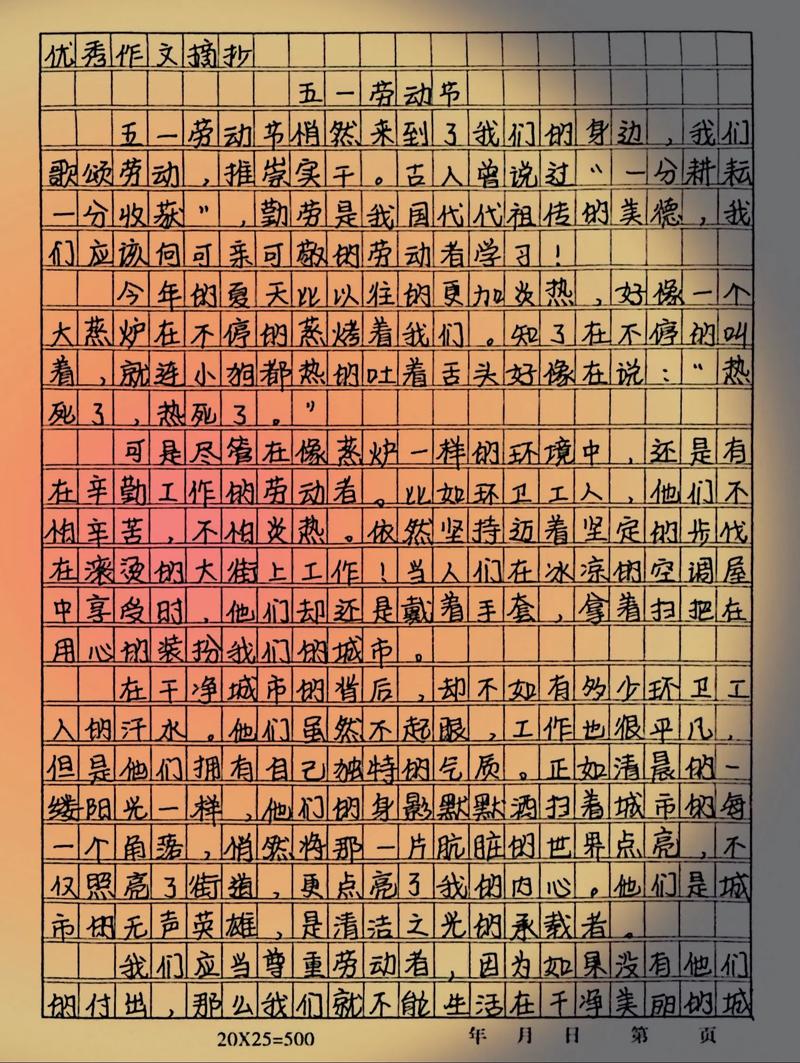 优秀作文摘抄
五一劳动节
五一劳动节悄然来到了我们的身边，我们
歌颂劳动，推崇实干。古人曾说过“一分耕耘
一分收获”，勤劳是我国代代祖传的美德，我
们应该向可亲可敬的劳动者学习！
今年的夏天比以往的更加炎热，好像一个
大蒸炉在不停的蒸烤着我们。知了在不停的叫
着，就连小狗都热的吐着舌头好像在说：“热
死了，热死了。”
可是尽管在像蒸炉一样的环境中，还是有
在辛勤工作的劳动者。比如环卫工人，他们不
怕辛苦，不怕炎热。依然坚持迈着坚定的步伐
在滚烫的大街上工作！当人们在冰凉的空调屋
中享受时，他们却还是戴着手套，拿着扫把在
用心的装扮我们的城市。
在干净城市的背后，却不如有多少环卫工
人的汗水。他们虽然不起眼，工作也很平凡，
但是他们拥有自己独特的气质。正如清晨的一
缕阳光一样，他们的身影默默洒扫着城市的每
一个角落，悄然将那一片肮脏的世界点亮，不
仅照亮了街道，更点亮了我的内心。他们是城
市的无声英雄，是清洁之光的承载者。
我们应当尊重劳动者，因为如果没有他们
的付出，那么我们就不能生活在干净美丽的城
20X25=500 年 月 日 第 页